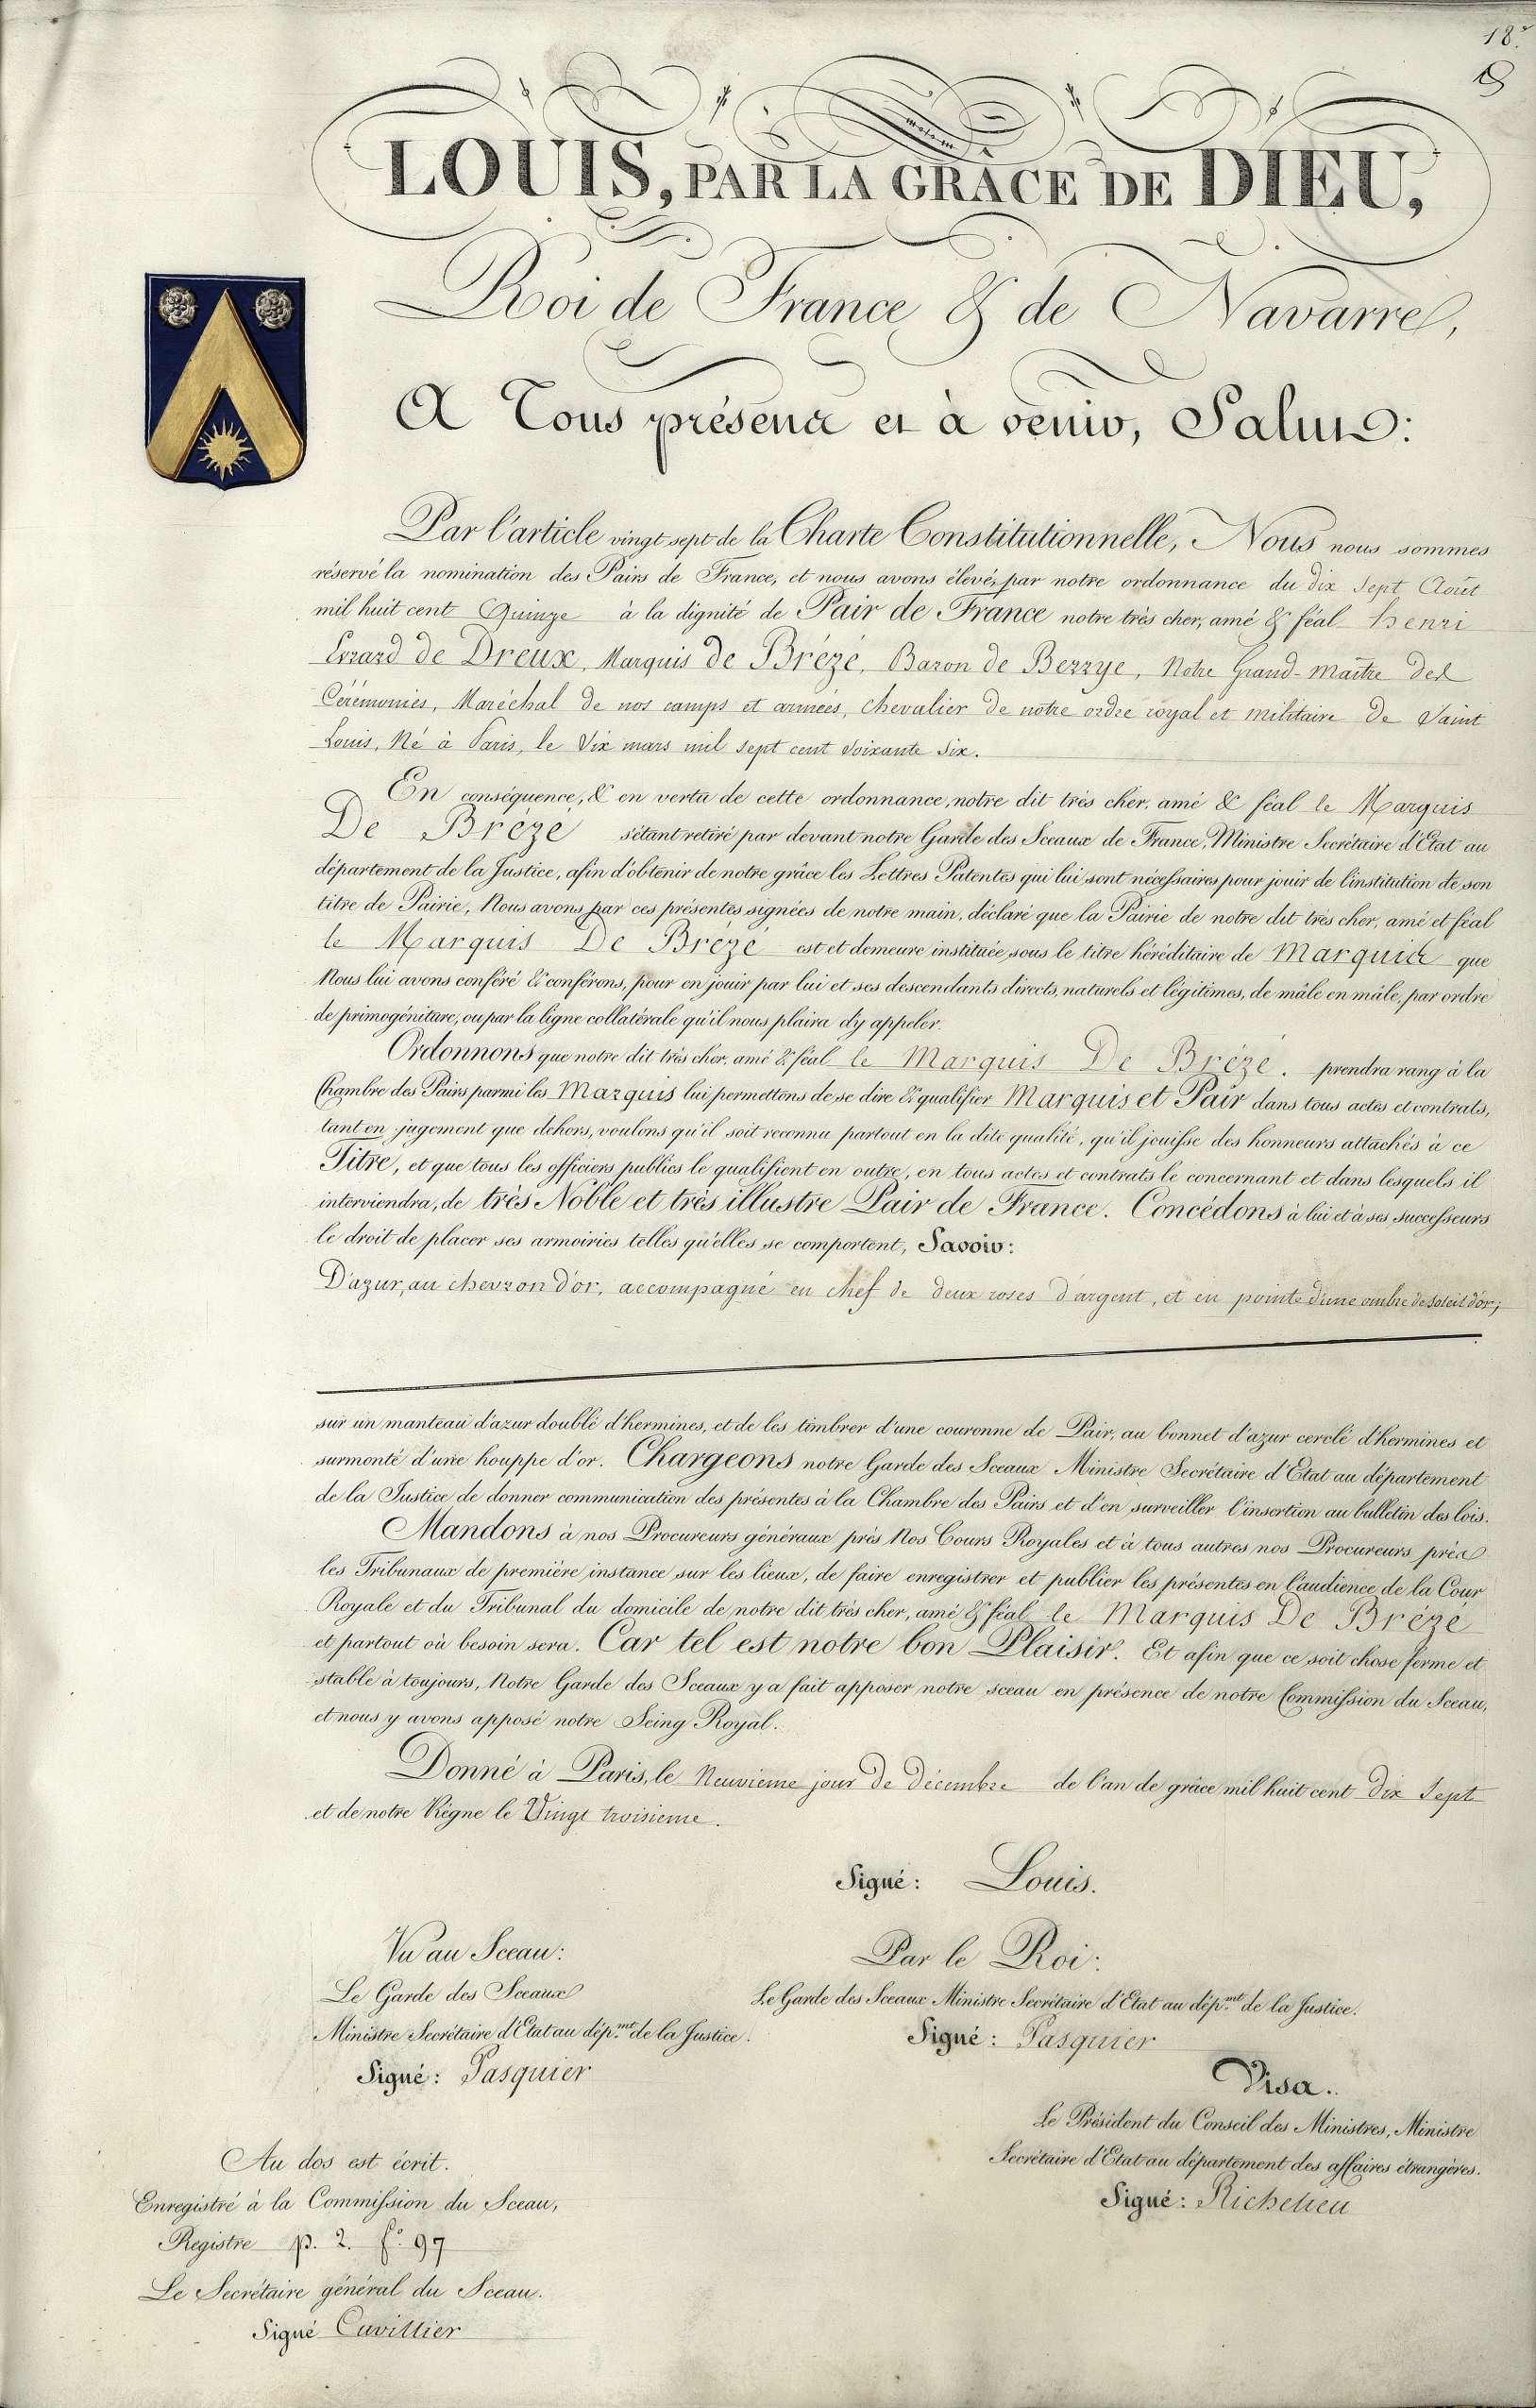 18.e
LOUIS, PAR LA GRÂCE DE DIEU,
Roi de France & de Navarre,
A Tous présents et à venir, Salut:
Par l'article vingt sept de la Charte Constitutionnelle, Nous nous sommes
réservé la nomination des Pairs de France, et nous avons élevé, par notre ordonnance du dix Sept Août
mil huit cent Quinze à la dignité de Pair de France notre très cher, amé & féal henri
Evrard de Dreux, Marquis de Brézé, Baron de Berrye, Notre Grand-Maître des
Cérémonies, Maréchal de nos camps et armées, chevalier de notre ordre royal et militaire de Saint
Louis, Né à Paris, le Six mars mil sept cent soixante six.
En conséquence, & en vertu de cette ordonnance, notre dit très cher, amé & féal le Marquis
De Brézé s'étant retiré par devant notre Garde des Sceaux de France, Ministre Secrétaire d'Etat au
département de la Justice, afin d'obtenir de notre grâce les Lettres Patentes qui lui sont nécessaires pour jouir de l'institution de son
titre de Pairie, Nous avons par ces présentes signées de notre main, déclaré que la Pairie de notre dit très cher, amé et féal
le Marquis De Brézé est et demeure instituée sous le titre héréditaire de Marquis que
Nous lui avons conféré & conférons, pour en jouir par lui et ses descendants directs, naturels et légitimes, de mâle en mâle, par ordre
de primogéniture, ou par la ligne collatérale qu'il nous plaira d'y appeler.
Ordonnons que notre dit très cher, amé & féal le Marquis De Brézé. prendra rang à la
Chambre des Pairs parmi les Marquis lui permettons de se dire & qualifier Marquis et Pair dans tous actes et contrats,
tant en jugement que dehors, voulons qu'il soit reconnu partout en la dite qualité, qu'il jouisse des honneurs attachés à ce
Titre, et que tous les officiers publics le qualifient en outre, en tous actes et contrats le concernant et dans lesquels il
interviendra, de très Noble et très illustre Pair de France. Concédons à lui et à ses successeurs
le droit de placer ses armoiries telles qu'elles se comportent, Savoir:
D'azur, au chevron d'or, accompagné en chef de deux roses d'argent, et en pointe d'une ombre de soleil d'or;
sur un manteau d'azur doublé d'hermines, et de les timbrer d'une couronne de Pair, au bonnet d'azur cerclé d'hermines et
surmonté d'une houppe d'or. Chargeons notre Garde des Sceaux Ministre Secrétaire d'Etat au département
de la Justice de donner communication des présentes à la Chambre des Pairs et d'en surveiller l'insertion au bulletin des lois.
Mandons à nos Procureurs généraux près Nos Cours Royales et à tous autres nos Procureurs près
les Tribunaux de première instance sur les lieux, de faire enregistrer et publier les présentes en l'audience de la Cour
Royale et du Tribunal du domicile de notre dit très cher, amé & féal le Marquis De Brézé
et partout où besoin sera. Car tel est notre bon Plaisir. Et afin que ce soit chose ferme et
stable à toujours, Notre Garde des Sceaux y a fait apposer notre sceau en présence de notre Commission du Sceau,
et nous y avons apposé notre Seing Royal.
Donné à Paris, le Neuvieme jour de décembre de l'an de grâce mil huit cent Dix Sept
et de notre Règne le Vingt troisieme.
Signé: Louis.
Vu au Sceau:
Le Garde des Sceaux
Ministre Secrétaire d'Etat au dép.mt de la Justice.
Signé: Pasquier
Par le Roi:
Le Garde des Sceaux Ministre Secrétaire d'Etat au dép.mt de la Justice.
Signé: Pasquier
Visa.
Le Président du Conseil des Ministres, Ministre
Secrétaire d'Etat au département des affaires étrangères.
Signé: Richelieu
Au dos est écrit.
Enregistré à la Commission du Sceau,
Registre p. 2. f.o 97
Le Secrétaire général du Sceau.
Signé Cuvillier